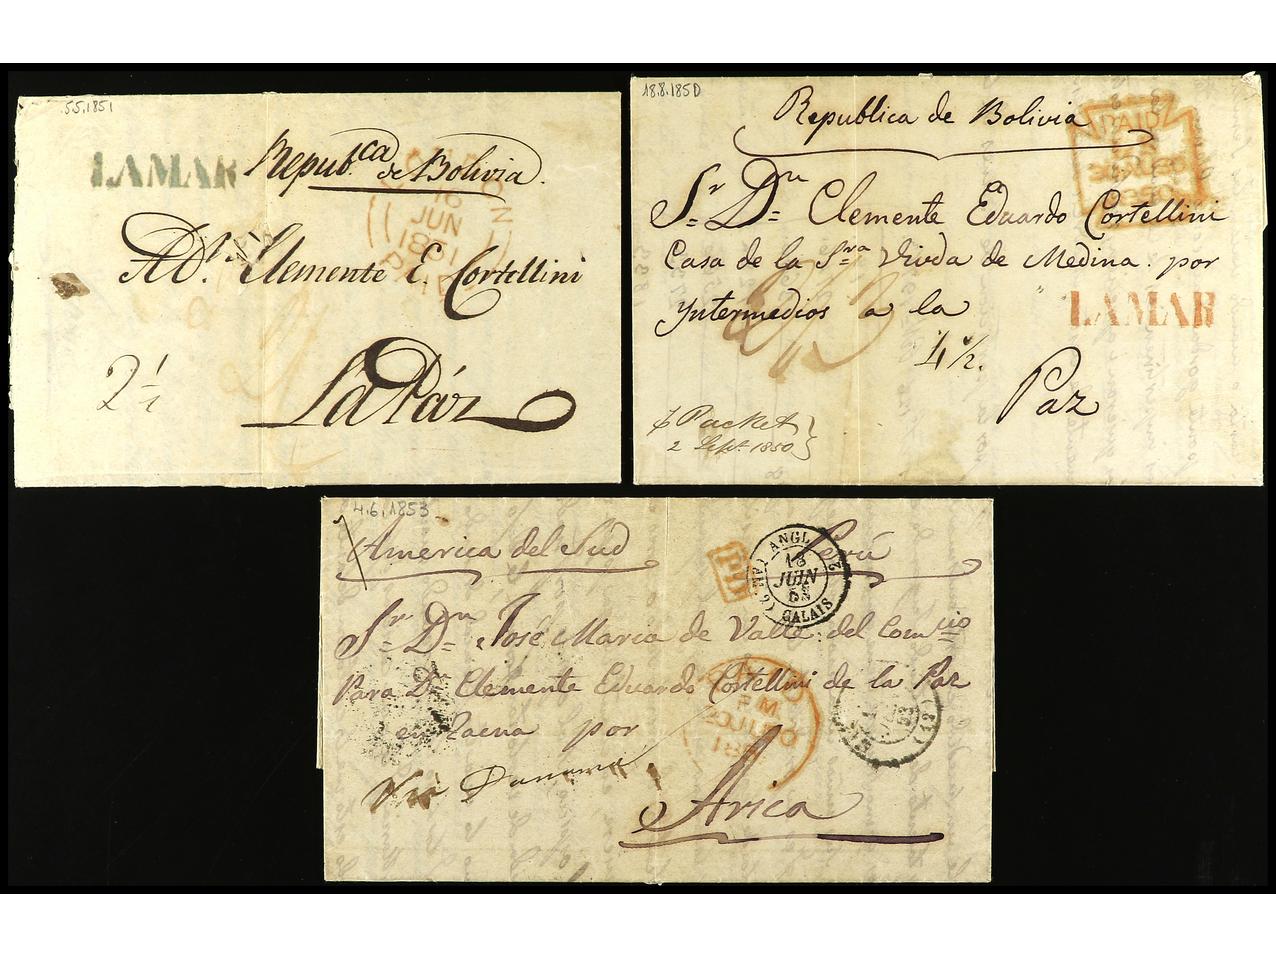 5.5.1851
LAMAR
Repub.ca de Bolivia.
16
JUN
1851
PAID
Ad.n Clemente E. Cortellini
2 1/2
La Páz
18.8.1850
Republica de Bolivia
PAID
1850
S.r D.n Clemente Eduardo Cortellini
Casa de la S.ra Viuda de Medina por
Yntermedios a la
LAMAR
4 1/2.
Paz
p Packet
2 Sept. 1850
4.6.1853
America del Sud
Perú
PD
ANGL.
2
JUIN
CALAIS
S.r D.n José Maria de Valle del Comcio
Para D.n Clemente Eduardo Cortellini de la Paz
en Tacna por
PM
Via Panama
(12)
Arica